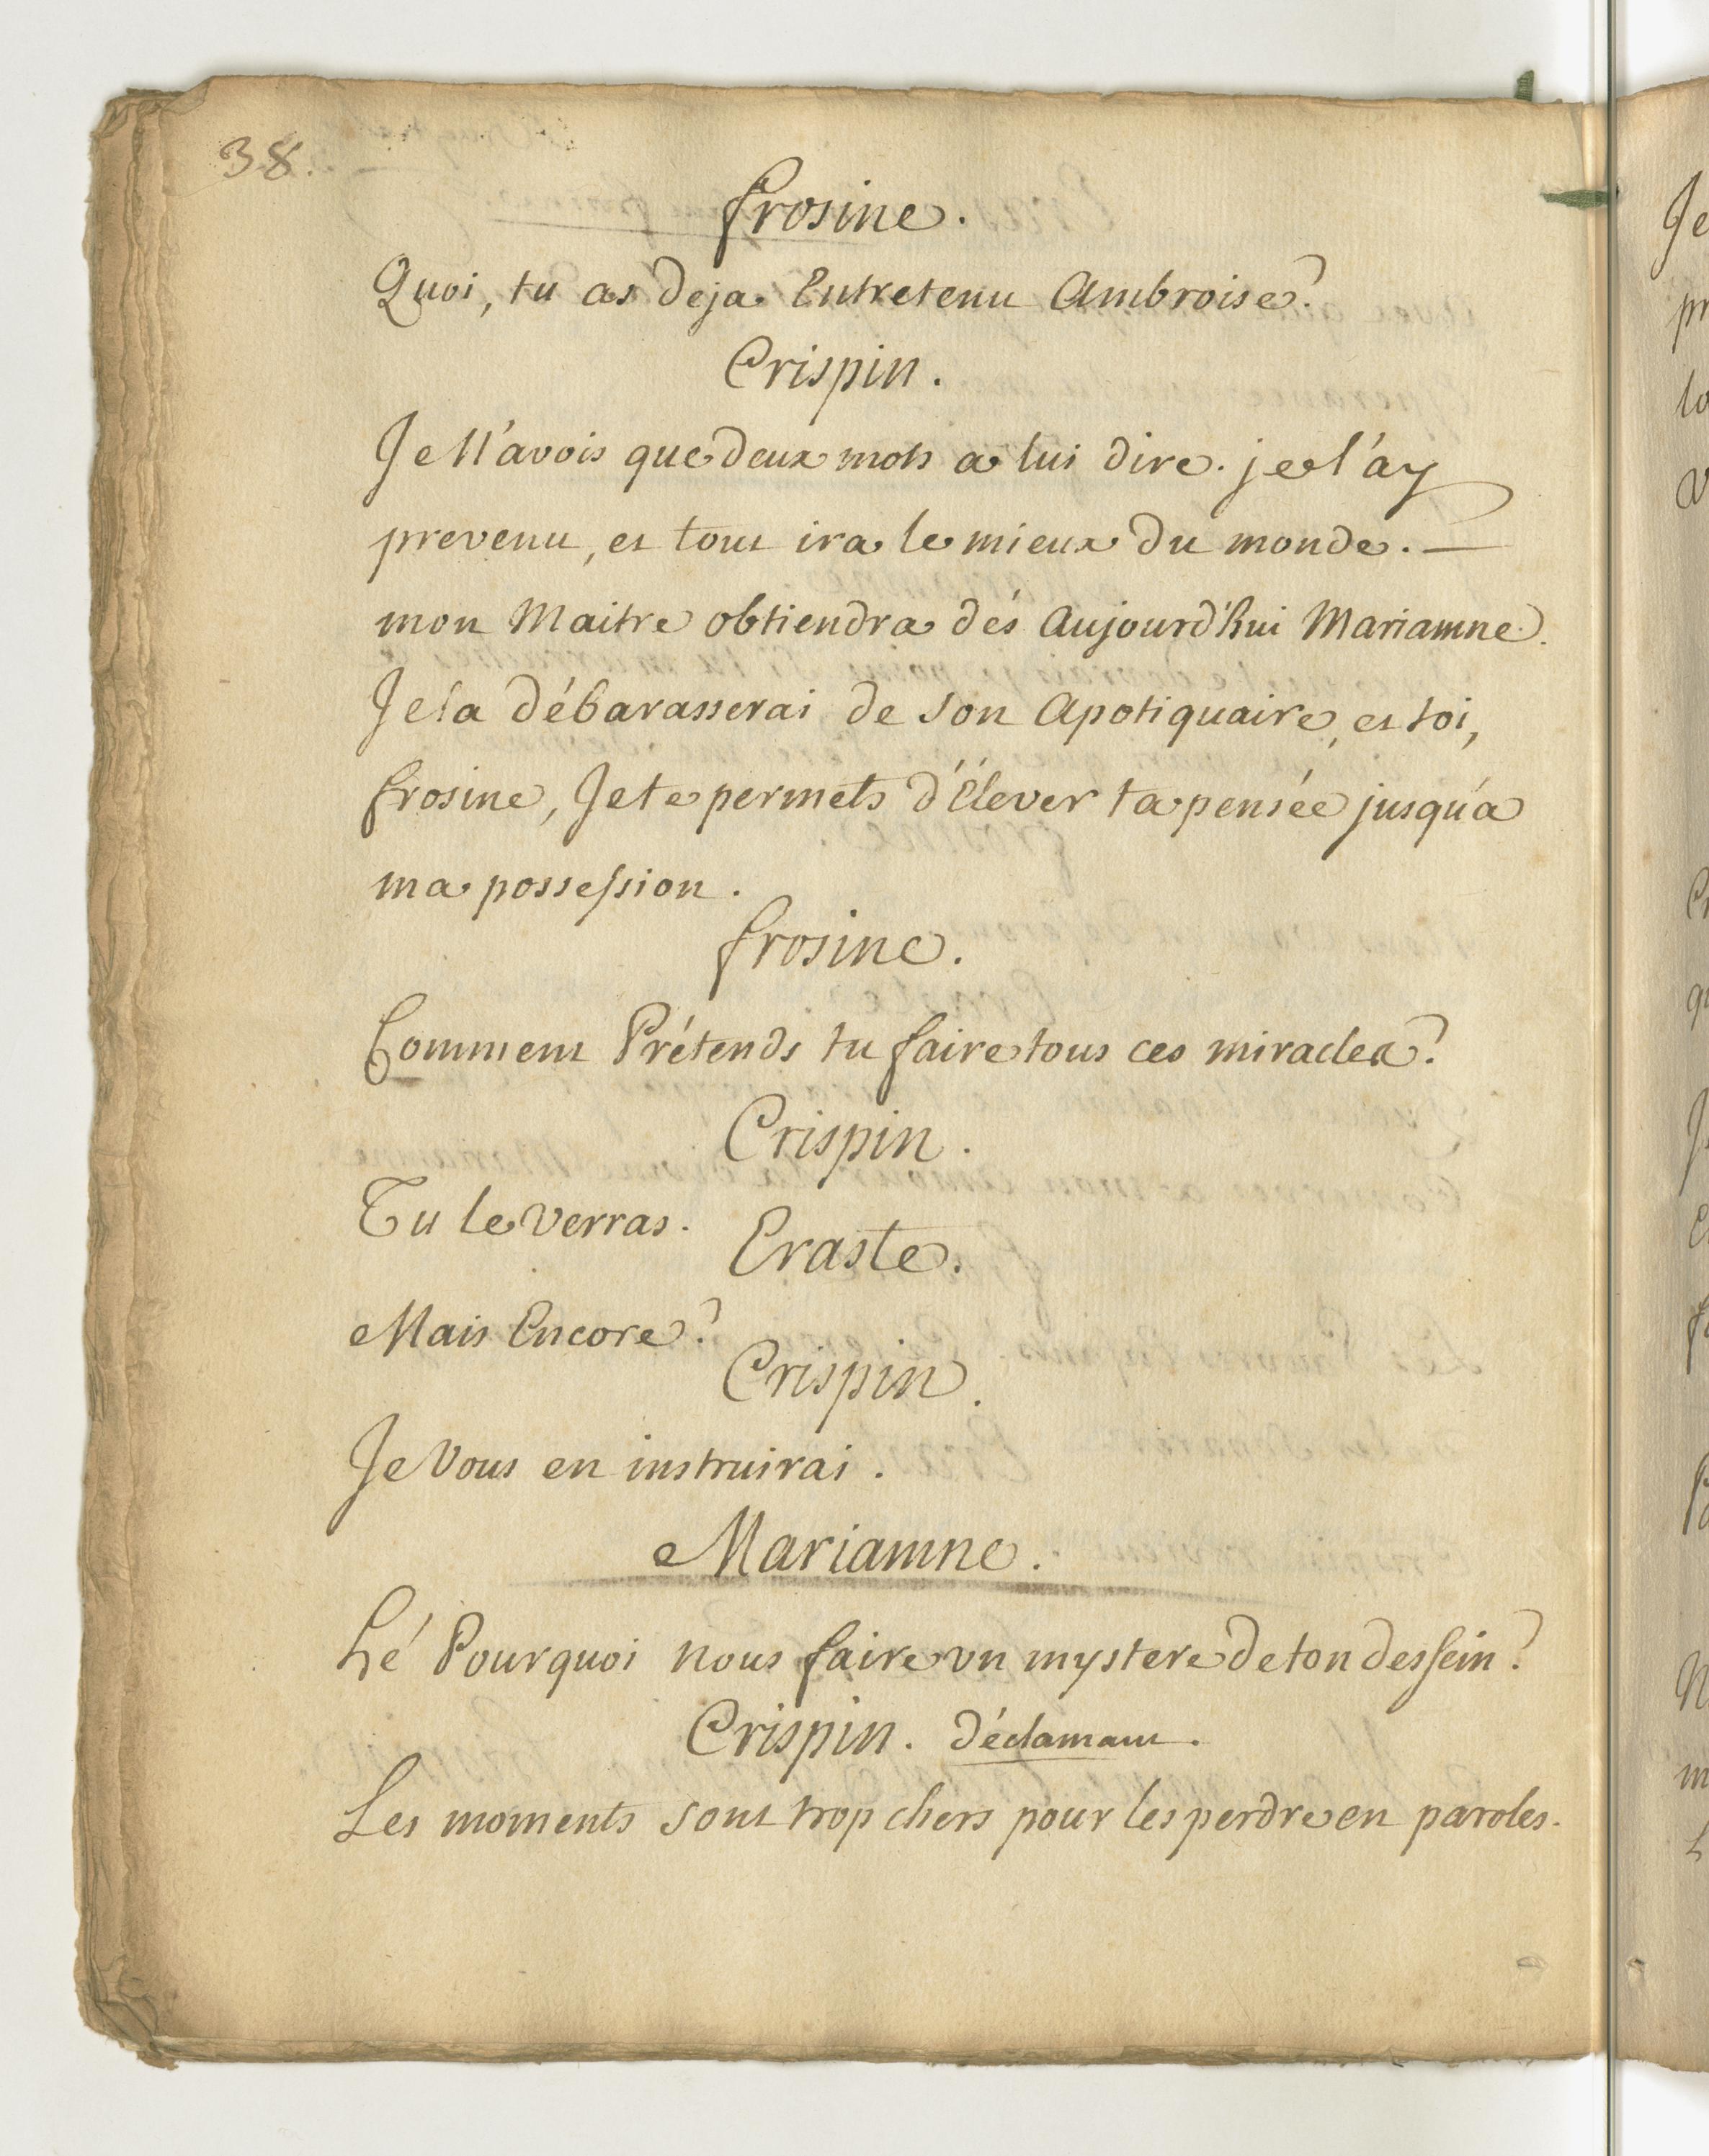 38.
frosine.
Quoi, tu as deja Entretenu Ambroise?
Crispin.
Je N'avois que deux mots a lui dire. je l'ay
prevenu, et tout ira le mieux du monde. —
mon Maitre obtiendra dés Aujourd'hui Mariamne.
Je la débarasserai de son Apotiquaire, et toi,
frosine, Je te permets d'Élever ta pensée jusqu'a
ma possession.
frosine.
Comment Prétends tu faire tous ces miracles?
Crispin.
Tu le verras.
Eraste.
Mais Encore?
Crispin.
Je Vous en instruirai.
Mariamne.
hé Pourquoi nous faire un mystere de ton dessein?
Crispin. déclamant.
Les moments sont trop chers pour les perdre en paroles.